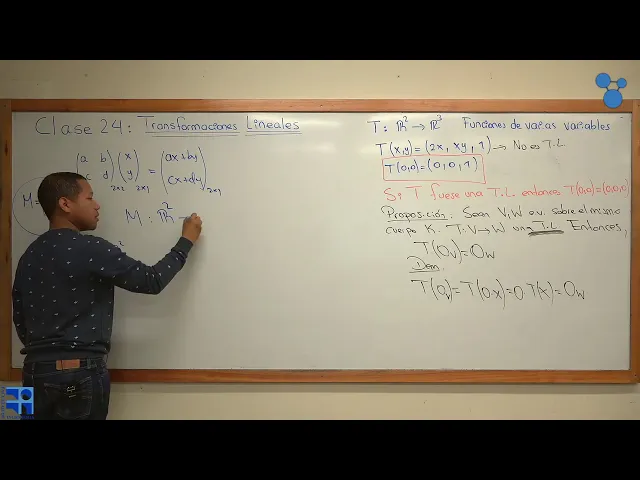 Clase 24: Transformaciones Lineales
(a b) (x) = (ax+by)
(c d)2x2 (y)2x1 (cx+dy)2x1
M=
M : ℝ² →
T: ℝ² → ℝ³ Funciones de varias variables
T(x,y) = (2x, xy, 1) → No es T.L
T(0,0) = (0,0,1)
Si T fuese una T.L. entonces T(0,0)=(0,0,0)
Proposición: Sean V,W e.v. sobre el mismo
cuerpo K. T: V→W una T.L. Entonces,
T(0v)=0w
Dem
T(0v)= T(0·x)=0 T(x)= 0w